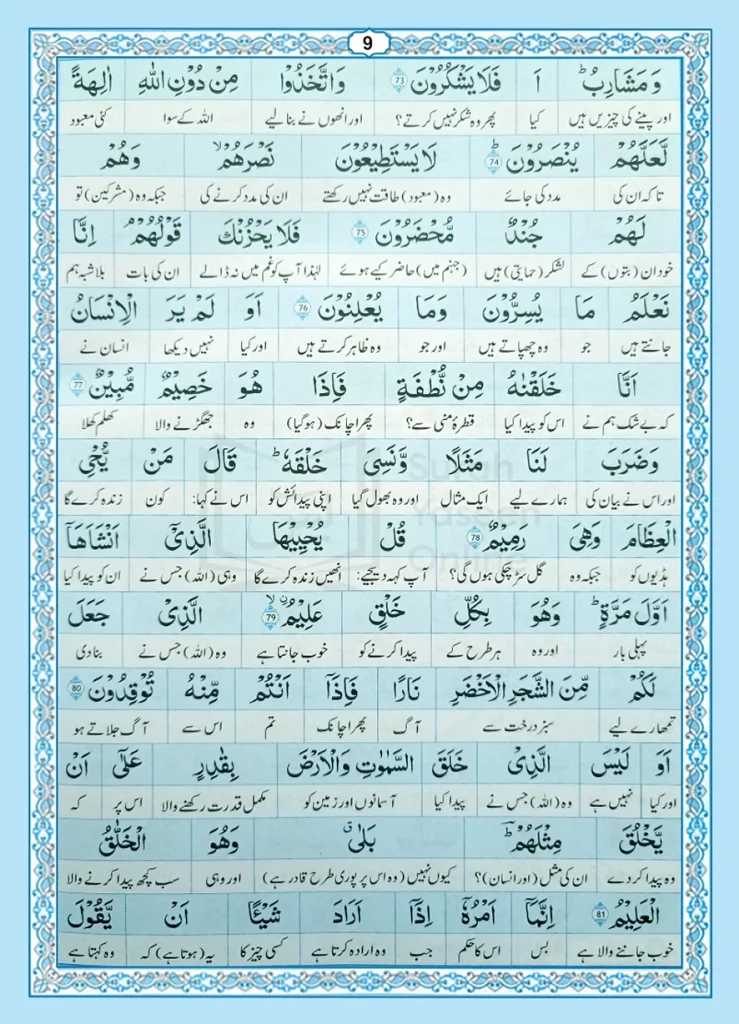 9
وَ مَشَارِبُ ؕ اَ فَلَا يَشْكُرُوْنَ 73 وَ اتَّخَذُوْا مِنْ دُوْنِ اللّٰهِ اٰلِهَةً
اور پینے کی چیزیں ہیں کیا پھر وہ شکر نہیں کرتے؟ اور انھوں نے بنا لیے اللہ کے سوا کئی معبود
لَّعَلَّهُمْ يُنْصَرُوْنَ ؕ 74 لَا يَسْتَطِيْعُوْنَ نَصْرَهُمْ ۙ وَهُمْ
تاکہ ان کی مدد کی جائے وہ (معبود) طاقت نہیں رکھتے ان کی مدد کرنے کی جبکہ وہ (مشرکین) تو
لَهُمْ جُنْدٌ مُّحْضَرُوْنَ 75 فَلَا يَحْزُنْكَ قَوْلُهُمْ ۘ اِنَّا
خود ان (بتوں) کے لشکر (حمایتی) ہیں (جہنم میں) حاضر کیے ہوئے لہٰذا آپ کو غم میں نہ ڈالے ان کی بات بلاشبہ ہم
نَعْلَمُ مَا يُسِرُّوْنَ وَمَا يُعْلِنُوْنَ 76 اَوَ لَمْ يَرَ الْاِنْسَانُ
جانتے ہیں جو وہ چھپاتے ہیں اور جو وہ ظاہر کرتے ہیں اور کیا نہیں دیکھا انسان نے
اَنَّا خَلَقْنٰهُ مِنْ نُّطْفَةٍ فَاِذَا هُوَ خَصِيْمٌ مُّبِيْنٌ 77
کہ بے شک ہم نے اس کو پیدا کیا قطرۂ منی سے؟ پھر اچانک (ہو گیا) وہ جھگڑنے والا کھلم کھلا
وَضَرَبَ لَنَا مَثَلًا وَّنَسِيَ خَلْقَهٗ ؕ قَالَ مَنْ يُّحْيِ
اور اس نے بیان کی ہمارے لیے ایک مثال اور وہ بھول گیا اپنی پیدائش کو اس نے کہا: کون زندہ کرے گا
الْعِظَامَ وَهِيَ رَمِيْمٌ 78 قُلْ يُحْيِيْهَا الَّذِيْۤ اَنْشَاَهَاۤ
ہڈیوں کو جبکہ وہ گل سڑ چکی ہوں گی؟ آپ کہہ دیجیے: انھیں زندہ کرے گا وہی (اللہ) جس نے ان کو پیدا کیا
اَوَّلَ مَرَّةٍ ؕ وَهُوَ بِكُلِّ خَلْقٍ عَلِيْمُۨ ۙ 79 الَّذِيْ جَعَلَ
پہلی بار اور وہ ہر طرح کے پیدا کرنے کو خوب جانتا ہے وہ (اللہ) جس نے بنا دی
لَكُمْ مِّنَ الشَّجَرِ الْاَخْضَرِ نَارًا فَاِذَاۤ اَنْتُمْ مِّنْهُ تُوْقِدُوْنَ 80
تمھارے لیے سبز درخت سے آگ پھر اچانک تم اس سے آگ جلاتے ہو
اَوَ لَيْسَ الَّذِيْ خَلَقَ السَّمٰوٰتِ وَالْاَرْضَ بِقٰدِرٍ عَلٰٓى اَنْ
اور کیا نہیں ہے وہ (اللہ) جس نے پیدا کیا آسمانوں اور زمین کو مکمل قدرت رکھنے والا اس پر کہ
يَّخْلُقَ مِثْلَهُمْ ؕ بَلٰى ۗ وَهُوَ الْخَلّٰقُ
وہ پیدا کر دے ان کی مثل (اور انسان)؟ کیوں نہیں (وہ اس پر پوری طرح قادر ہے) اور وہی سب کچھ پیدا کرنے والا
الْعَلِيْمُ 81 اِنَّمَاۤ اَمْرُهٗۤ اِذَاۤ اَرَادَ شَيْـًٔا اَنْ يَّقُوْلَ
خوب جاننے والا ہے بس اس کا حکم جب وہ ارادہ کرتا ہے کسی چیز کا یہ (ہوتا ہے) کہ وہ کہتا ہے
Surah
Yaseen
Online